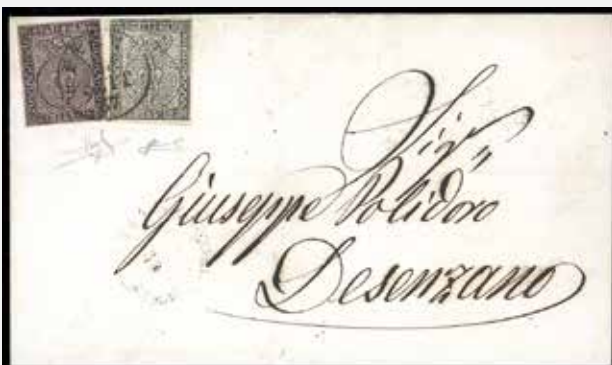 Sigr
Giuseppe Polidoro
Desenzano